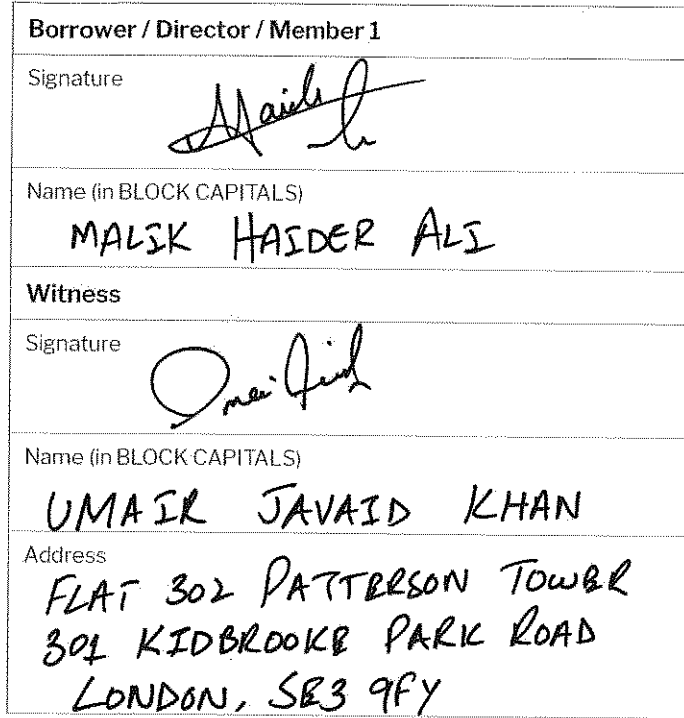 Borrower / Director / Member 1
Signature
Name (in BLOCK CAPITALS)
MALIK HAIDER ALI
Witness
Signature
Name (in BLOCK CAPITALS)
UMAIR JAVAID KHAN
Address
FLAT 302 PATTERSON TOWER
301 KIDBROOKE PARK ROAD
LONDON, SE3 9FY